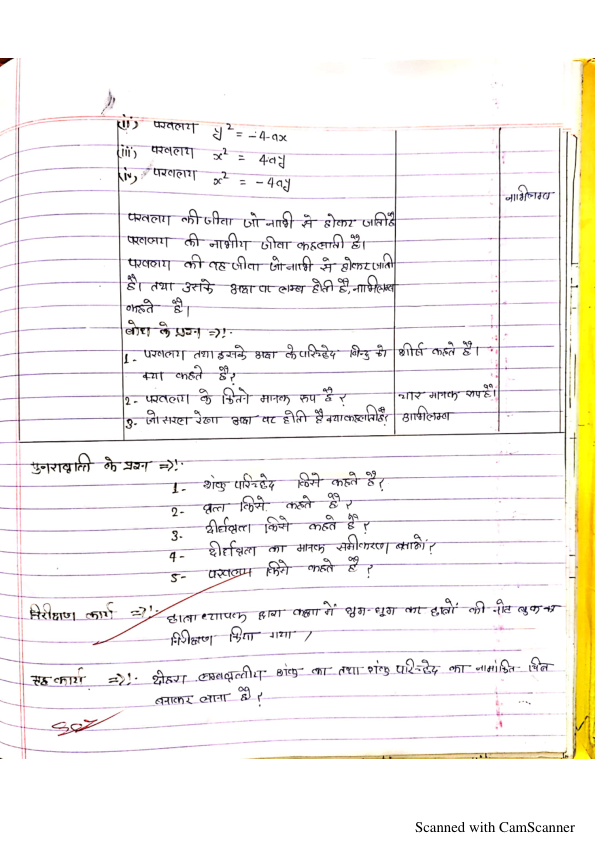 (ii) परवलय y² = -4ax
(iii) परवलय x² = 4ay
(iv) परवलय x² = -4ay
नाभिलम्ब
परवलय की जीवा जो नाभी से होकर जाती है
परवलय की नाभीय जीवा कहलाती है।
परवलय की वह जीवा जो नाभी से होकर जाती
है। तथा उसके अक्ष पर लम्ब होती है, नाभिलम्ब
कहते है।
बोध के प्रश्न =>!·
1. परवलय तथा इसके अक्ष के परिच्छेद बिन्दु को शीर्ष कहते है।
क्या कहते है?
2- परवलय के कितने मानक रूप है? चार मानक रूप है।
3- जो सरल रेखा अक्ष पर होती है क्या कहलाती है?
पुनरावृति के प्रश्न =>!·
1- शंकु परिच्छेद किसे कहते है?
2- वृत्त किसे कहते है?
3- दीर्घवृत्त किसे कहते है?
4- दीर्घवृत्त का मानक समीकरण बताओं?
5- परवलय किसे कहते है?
निरीक्षण कार्य =>!· छात्राध्यापक द्वारा कक्षा में घुम-घुम कर छात्रों की नोट बुक का
निरीक्षण किया गया /
गृह कार्य =>!· दोहरा लम्बवृत्तीय शंकु का तथा शंकु परिच्छेद का नामांकित चित्र
बनाकर लाना है?
Scanned with CamScanner